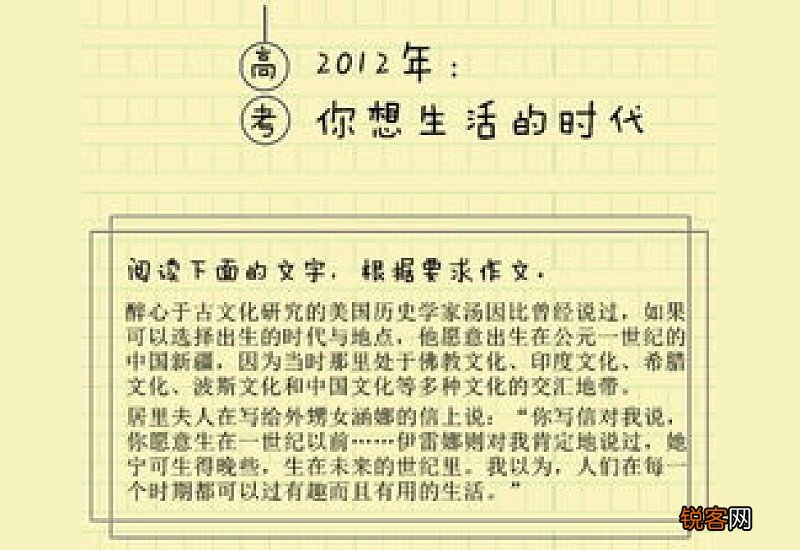 高考
2012年：
你想生活的时代
阅读下面的文字，根据要求作文．
醉心于古文化研究的美国历史学家汤因比曾经说过，如果
可以选择出生的时代与地点，他愿意出生在公元一世纪的
中国新疆，因为当时那里处于佛教文化、印度文化、希腊
文化、波斯文化和中国文化等多种文化的交汇地带。
居里夫人在写给外甥女涵娜的信上说：“你写信对我说，
你愿意生在一世纪以前……伊雷娜则对我肯定地说过，她
宁可生得晚些，生在未来的世纪里。我以为，人们在每一
个时期都可以过有趣而且有用的生活。”
锐客网